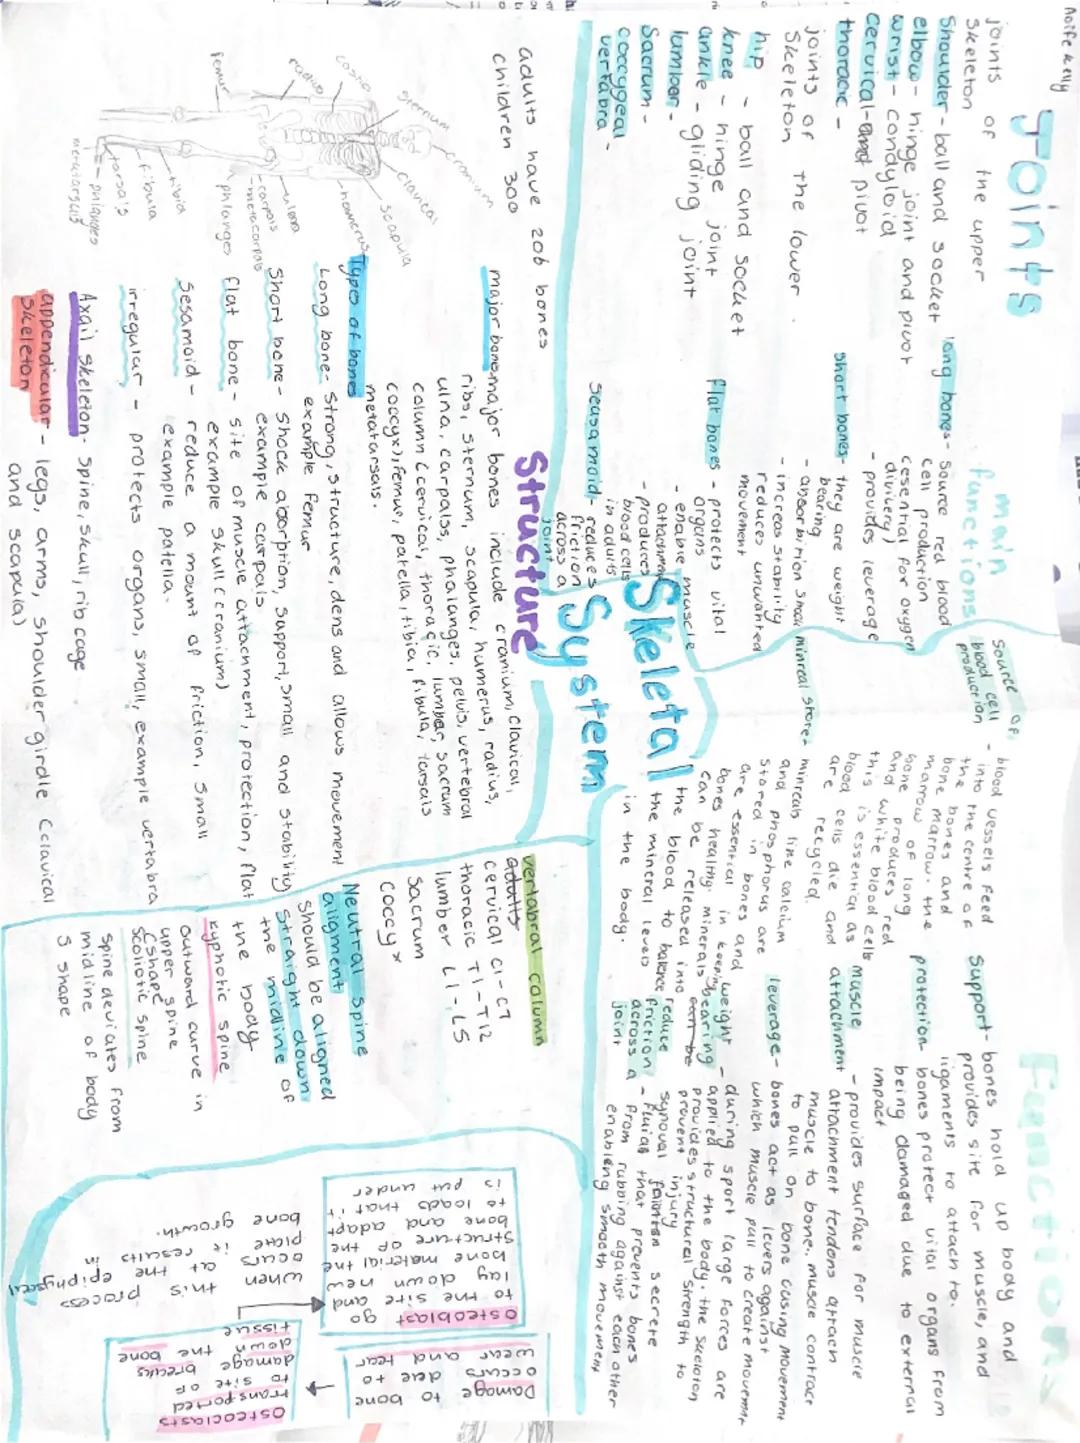 Aoife Kelly
Joints
joints of the upper
skeleton
Shoulder - ball and socket
elbow - hinge joint and pivot
wrist - condyloid
cervical - and pivot
thoracic -
joints of the lower
Skeleton
hip - ball and socket
knee - hinge joint
ankle - gliding joint
lumbar -
Sacrum -
coccygeal -
vertabra
main
functions
long bones - Source red blood
cell production
(esential for oxygen
divivery)
- provides leverage
short bones - they are weight
bearing
- absorbition shock
- increas stability
reduces unwanted
movement
flat bones - protects vital
organs
- enable muscle
attachment
- produces
blood cells
in adults
seusamoid - reduces
friction
across a
joint
Skeletal
System
Source of
blood cell
production
- blood vessels feed
into the centre of
the bones and
bone marrow. the
marrow of long
bone produces red
and white blood cells
this is essential as
blood cells die and
are recycled.
minreal store -
minreals like calcium
and phosphorus are
stored in bones and
are essential in keeping
bones healthy. minerals
can be released into
the blood to balance
the mineral levels
in the body.
Functions
Support - bones hold up body and
provides site for muscle, and
ligaments to attach to.
protection - bones protect vital organs from
being damaged due to external
impact
muscle
attachment - provides surface for muscle
attachment tendons attach
muscle to bone. muscle contract
to pull on bone cusing movement
leverage - bones act as levers against
which muscle pull to create movement
weight
bearing - during sport large forces are
can be applied to the body. the skeleton
provides structural strength to
prevent injury
reduce
friction
across a
joint
synovial secrete
- fluids that prevents bones
from rubbing against each other
enabling smooth movement
adults have 206 bones
children 300
cranium
sternum
clavical
costio
scapula
radius
homerus
ulona
carpals
metocarpals
phlanges
femur
tibia
fibula
tarsa's
phlanges
metatarsals
Structure
major bones major bones include cranium, clavical,
ribs, sternum, scapula, humerus, radius,
ulna, carpals, phalanges, pelvis, vertebral
column (cervical, thoracic, lumbar, sacrum
coccyx), femur, patella, tibia, fibula, tarsals
metatarsals.
Types of bones
Long bone - Strong, structure, dens and allows movement
example femur
Short bone - Shock absorption, support, small and stability
example carpals
flat bone - site of muscle attachment, protection, flat
example skull (cranium)
Sesamoid - reduce a mount of friction, small
example patella.
irregular - protects organs, small, example vertabra
Axail skeleton - spine, skull, rib cage
appendicular
skeleton - legs, arms, shoulder girdle (clavical
and scapula)
vertabral column
adults
cervical C1-C7
thoracic T1-T12
lumber L1-L5
Sacrum
coccyx
Neutral spine
aligment
should be aligned
straight down
the midline of
the body
kyphotic spine
outward curve in
upper spine
Cshape
scoliotic spine
Spine deviates from
midline of body
S shape
Damage to bone
occurs due to
wear and tear
Osteoclasts
transported
to site of
damage breaks
down the bone
tissue
Osteoblast go
to the site and
lay down new
bone material the
structure of the
bone and adapt
to loads that it
is put under
when this process
occurs at the epiphyseal
plate it results in
bone growth.